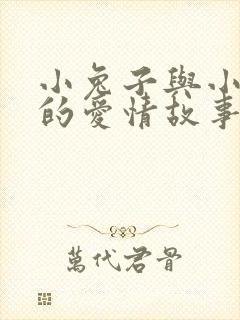 小兔子與小
的愛情故事
萬代君骨